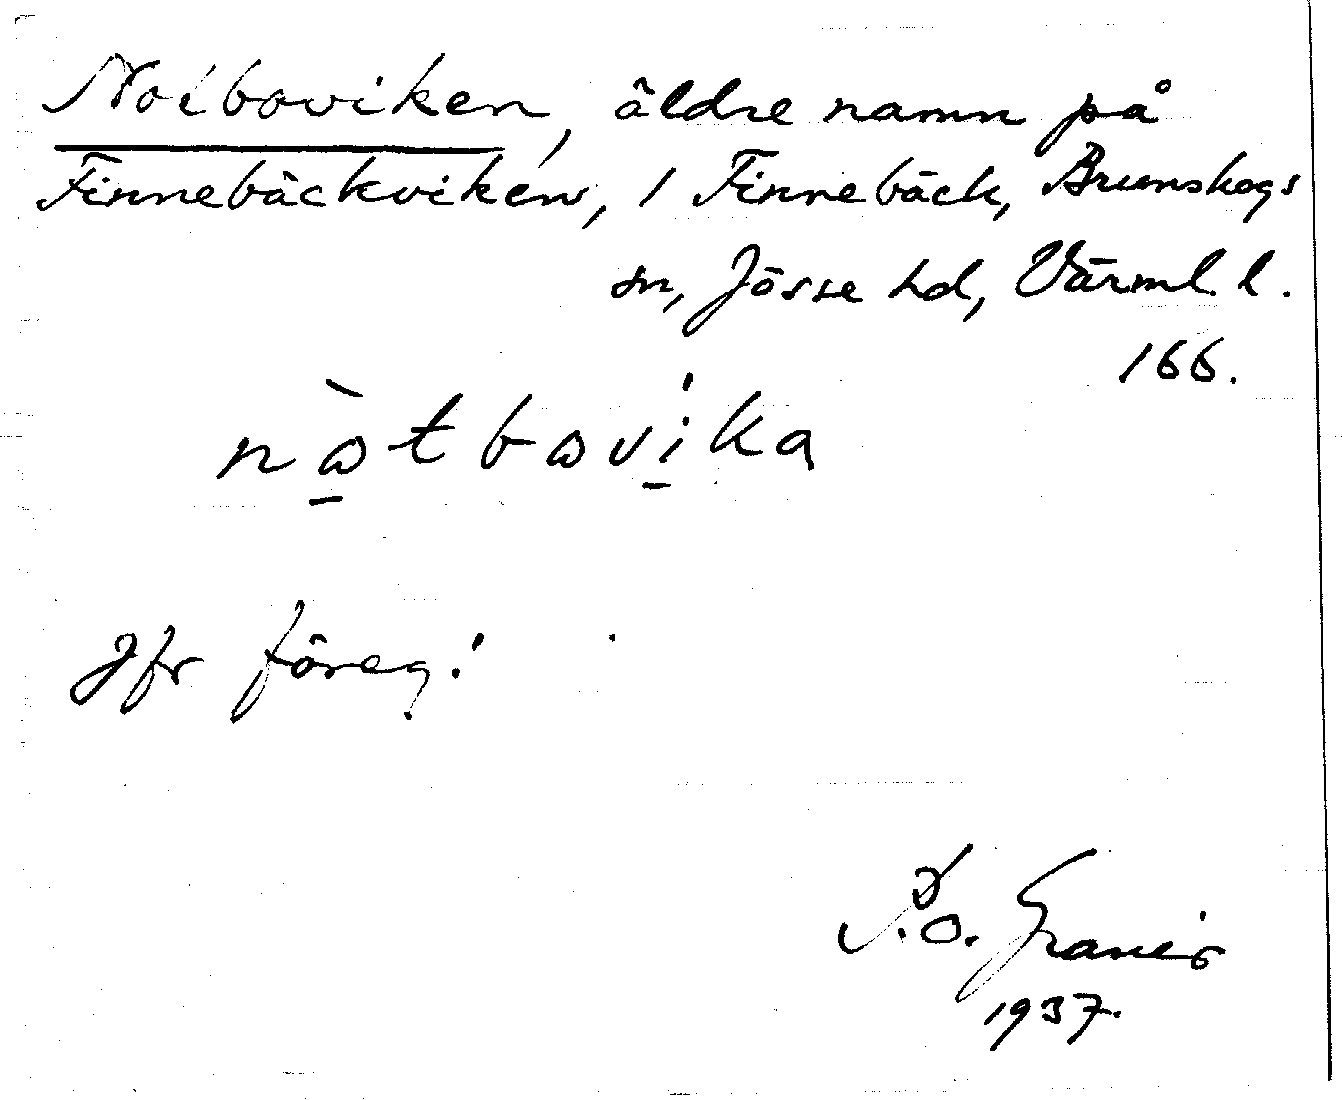 Notboviken, äldre namn på
Finnebäckviken, 1 Finnebäck, Brunskogs
sn, Jösse hd, Värml. l.
166.
nòtbovíka
Jfr föreg.!
P.O.
1937.